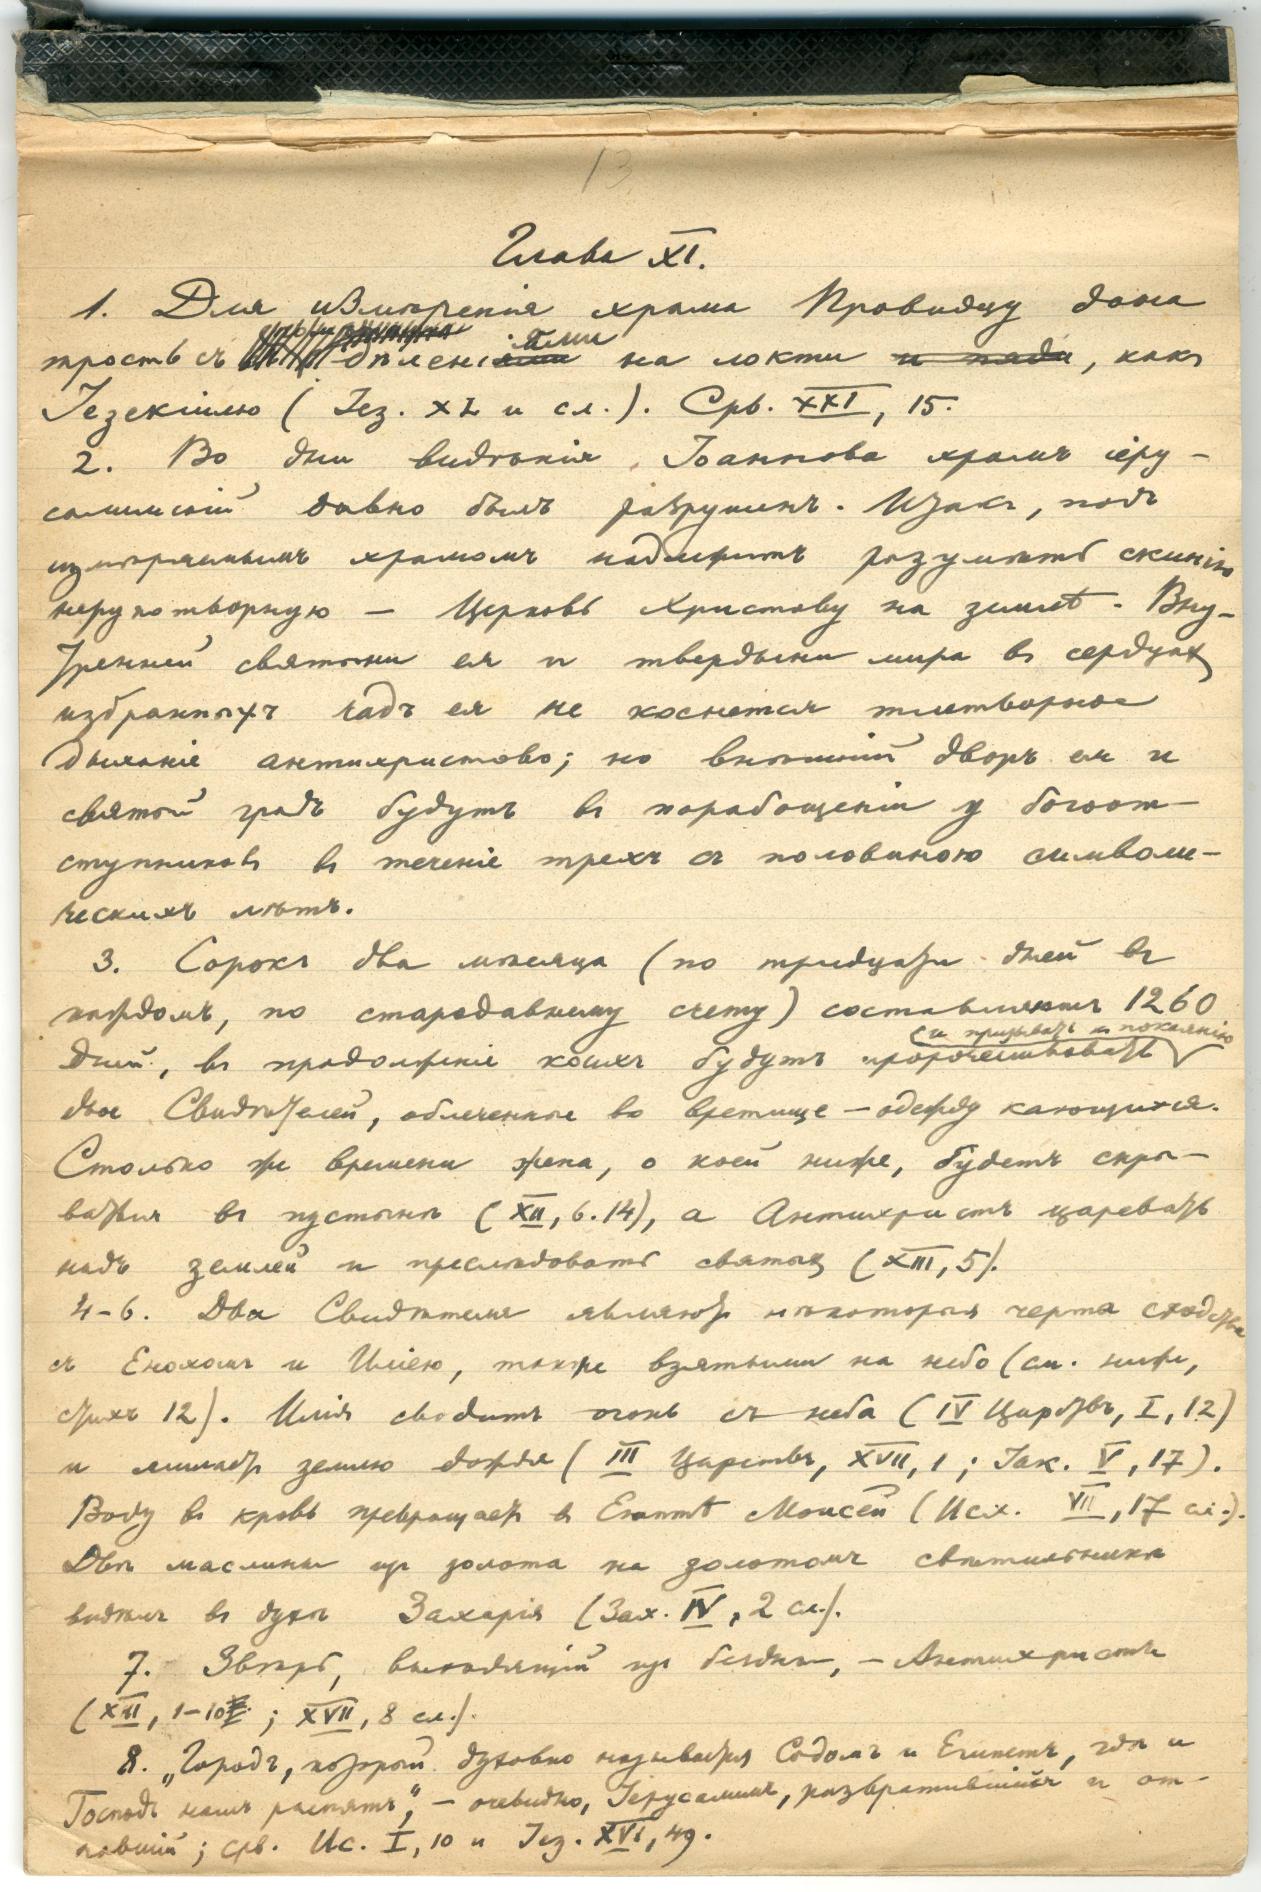 13
Глава XI.
1. Для измѣренія храма Провидцу дана
трость съ дѣленіями на локти и пяди, какъ
Іезекіилю (Іез. XL и сл.). Срв. XXI, 15.
2. Во дни видѣнія Іоаннова храмъ іеру-
салимскій давно былъ разрушенъ. Итакъ, подъ
измѣряемымъ храмомъ надлежитъ разумѣть скинію
нерукотворную – Церковь Христову на землѣ. Вну-
тренней святыни ея и твердыни мира въ сердцахъ
избранныхъ чадъ ея не коснется тлетворное
дыханіе антихристово; но внѣшній дворъ ея и
святой градъ будутъ въ порабощеніи у богоот-
ступниковъ въ теченіе трехъ съ половиною символи-
ческихъ лѣтъ.
3. Сорокъ два мѣсяца (по тридцати дней въ
каждомъ, по стародавнему счету) составляютъ 1260
и призывать къ покаянію
дней, въ продолженіе коихъ будутъ пророчествовать
два Свидѣтелей, облеченные во вретище – одежду кающихся.
Столько же времени жена, о коей ниже, будетъ скры-
ваться въ пустынѣ (XII, 6. 14), а Антихристъ царевать
надъ землей и преслѣдовать святыхъ (XIII, 5).
4-6. Два Свидѣтеля являютъ нѣкоторыя черты сходства
съ Енохомъ и Иліею, также взятыми на небо (см. ниже,
стихъ 12). Илія сводитъ огонь съ неба (IV Царствъ, I, 12)
и лишаетъ землю дождя (III Царствъ, XVII, 1; Іак. V, 17).
Воду въ кровь превращаетъ въ Египтѣ Моисей (Исх. VII, 17 сл.).
Двѣ маслины изъ золота на золотомъ свѣтильникѣ
видѣлъ въ духѣ Захарія (Зах. IV, 2 сл.).
7. Звѣрь, выходящій изъ бездны, – Антихристъ
(XIII, 1-10; XVII, 8 сл.).
8. „Городъ, который духовно называется Содомъ и Египетъ, гдѣ и
Господь нашъ распятъ", – очевидно, Іерусалимъ, развратившійся и от-
павшій; срв. Ис. I, 10 и Іез. XVI, 49.